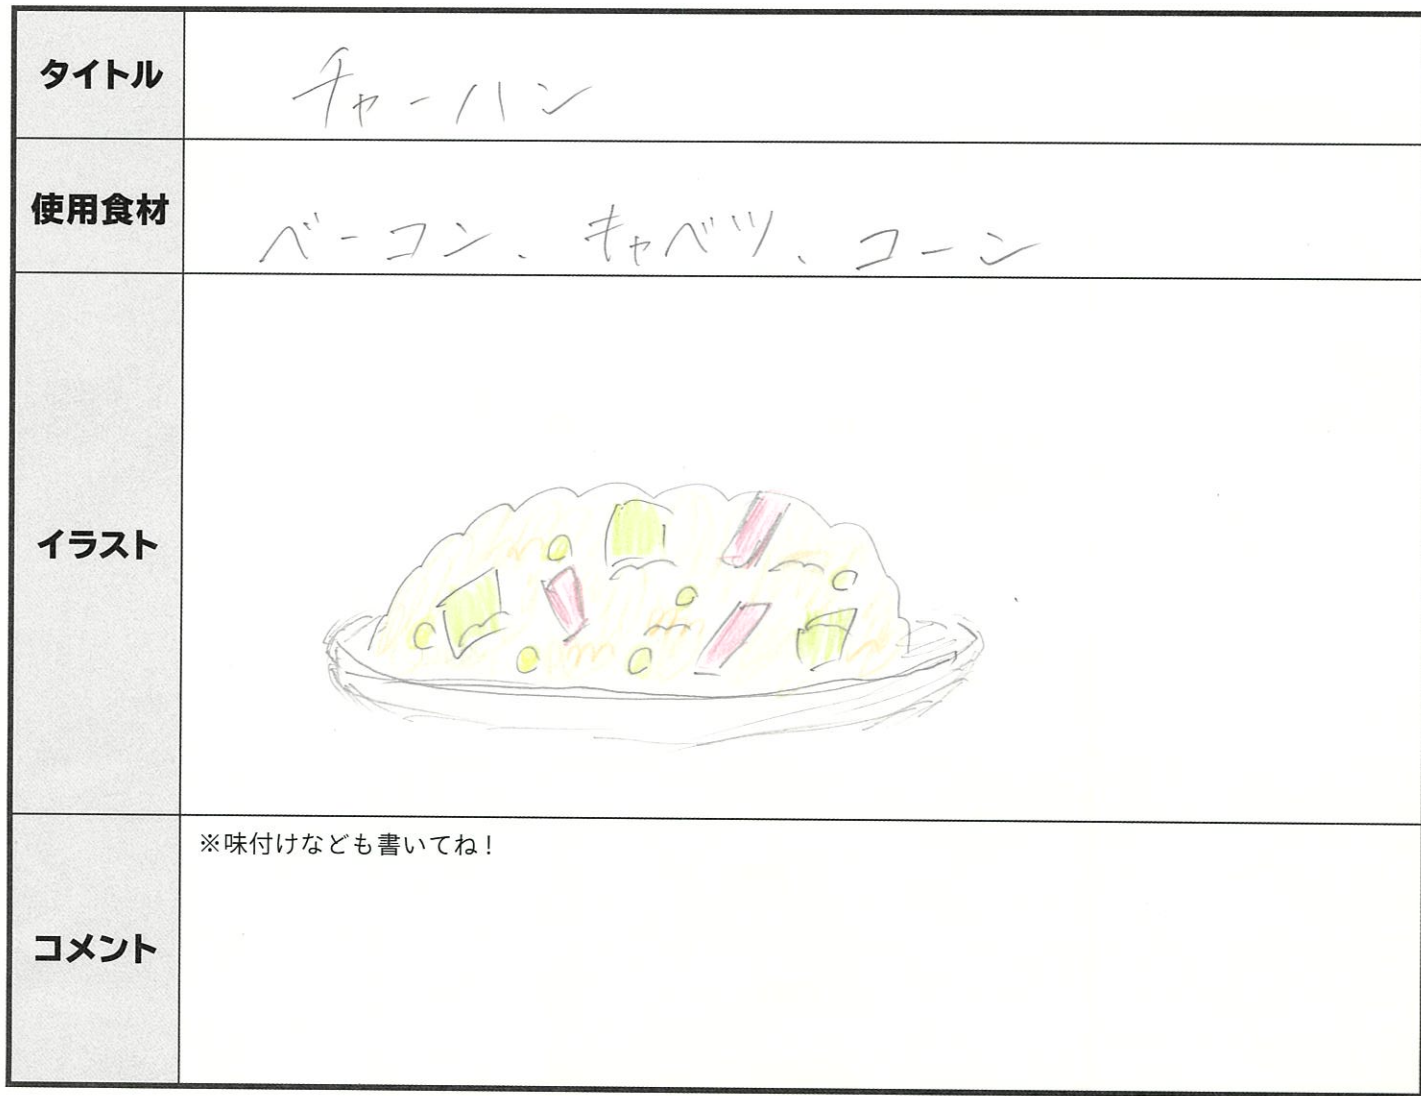 タイトル
チャーハン
使用食材
ベーコン、キャベツ、コーン
イラスト
※味付けなども書いてね！
コメント